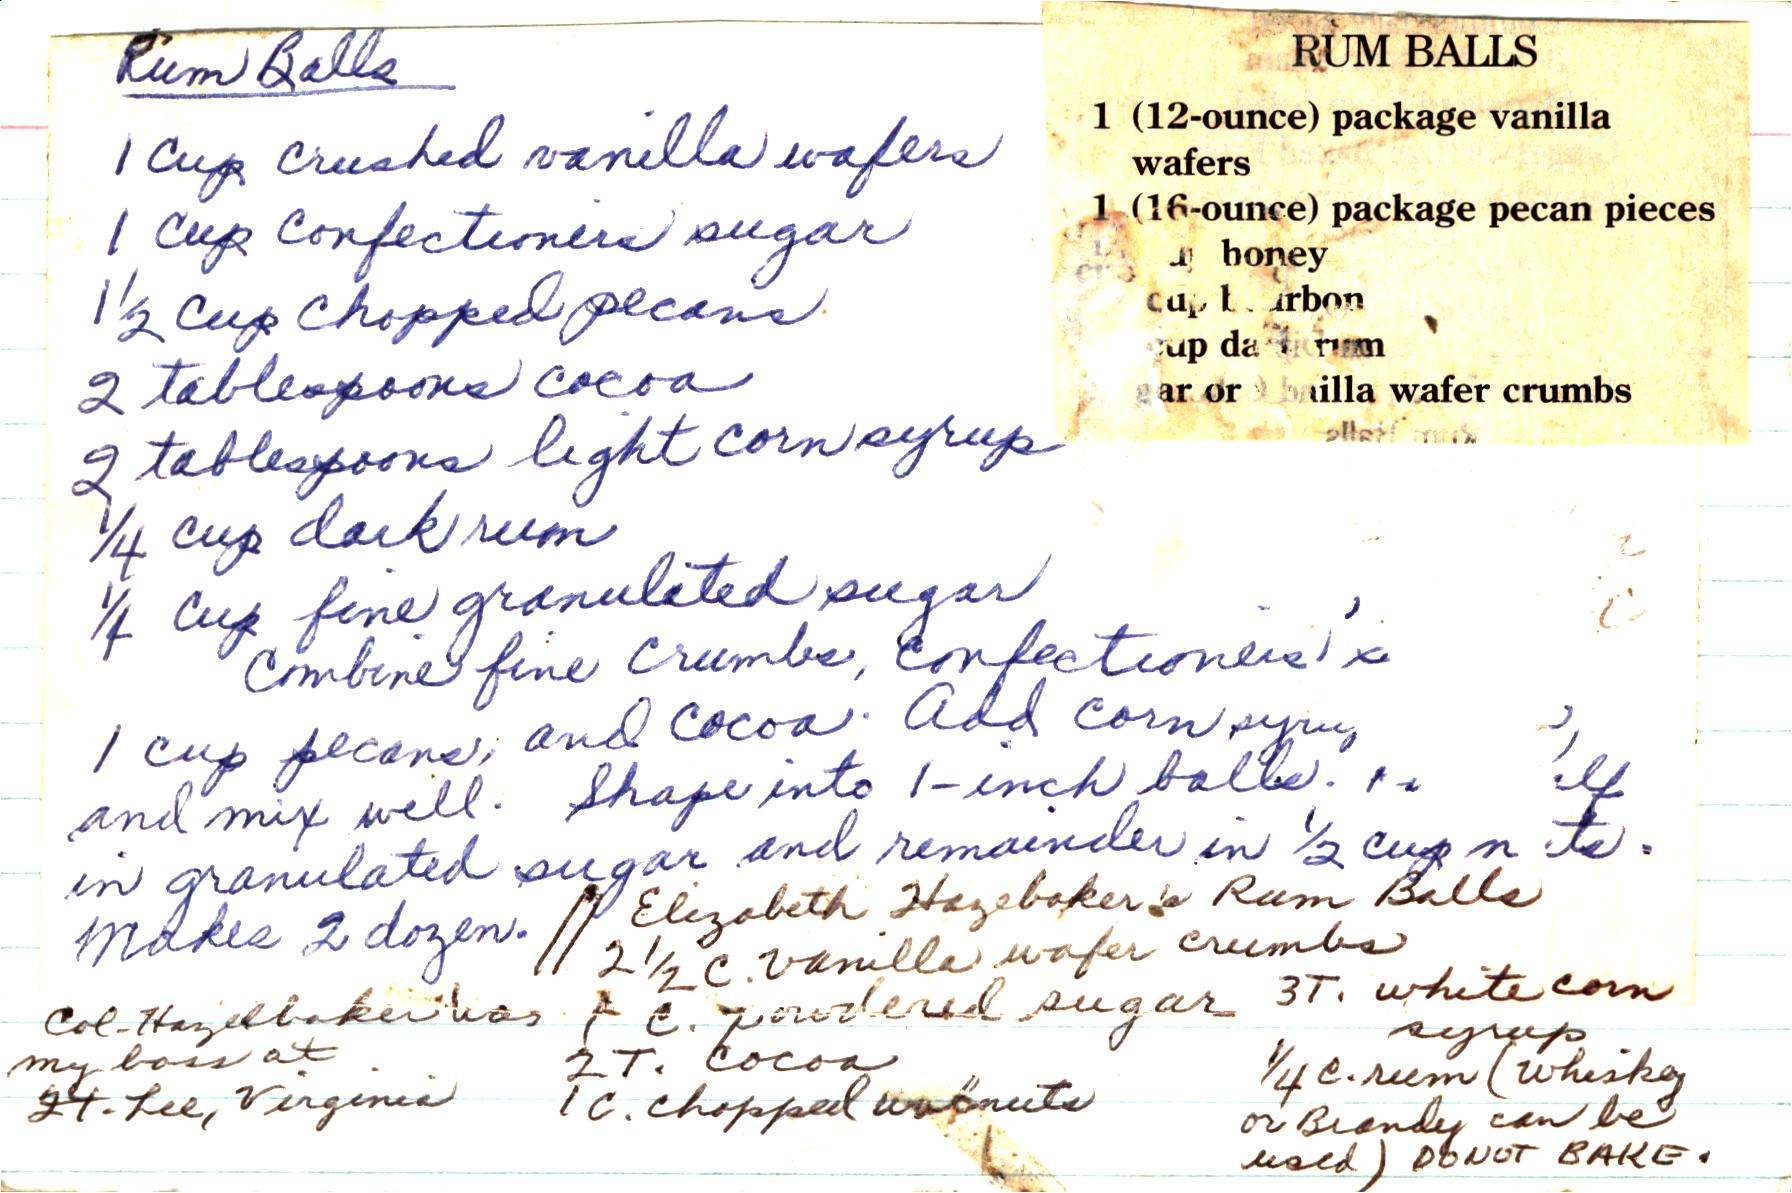 Rum Balls
1 cup crushed vanilla wafers
1 cup confectioners sugar
1½ cup chopped pecans
2 tablespoons cocoa
2 tablespoons light corn syrup
¼ cup dark rum
¼ cup fine granulated sugar
Combine fine crumbs, confectioners'
1 cup pecans, and cocoa. Add corn syrup
and mix well. Shape into 1-inch balls.
in granulated sugar and remainder in ½ cup
Makes 2 dozen.
RUM BALLS
1 (12-ounce) package vanilla
wafers
1 (16-ounce) package pecan pieces
honey
cup bourbon
cup dark rum
or vanilla wafer crumbs
Elizabeth Hazebaker's Rum Balls
2½ C. vanilla wafer crumbs
1 C. powdered sugar
2 T. cocoa
1 C. chopped walnuts
3T. white corn
syrup
¼ c. rum (Whiskey
or Brandy can be
used) DO NOT BAKE.
Col. Hazelbaker was
my boss at
Ft. Lee, Virginia